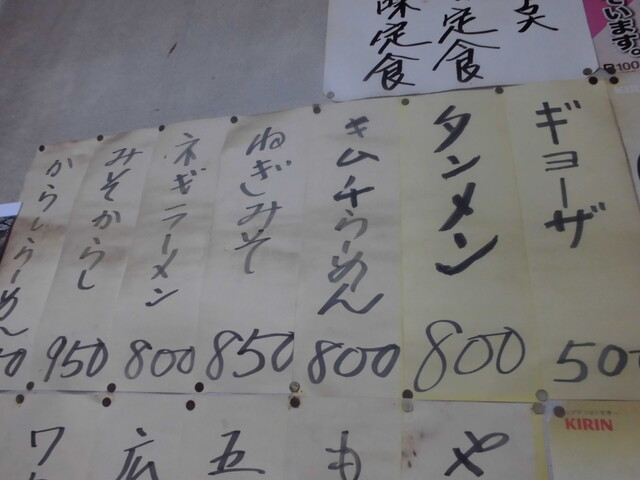 定食
定食
います。
100
ギョーザ
500
タンメン
800
キムチらーめん
800
ねぎみそ
850
ネギラーメン
800
みそからし
950
からしらーめん
KIRIN
や
も
五
広
ワ